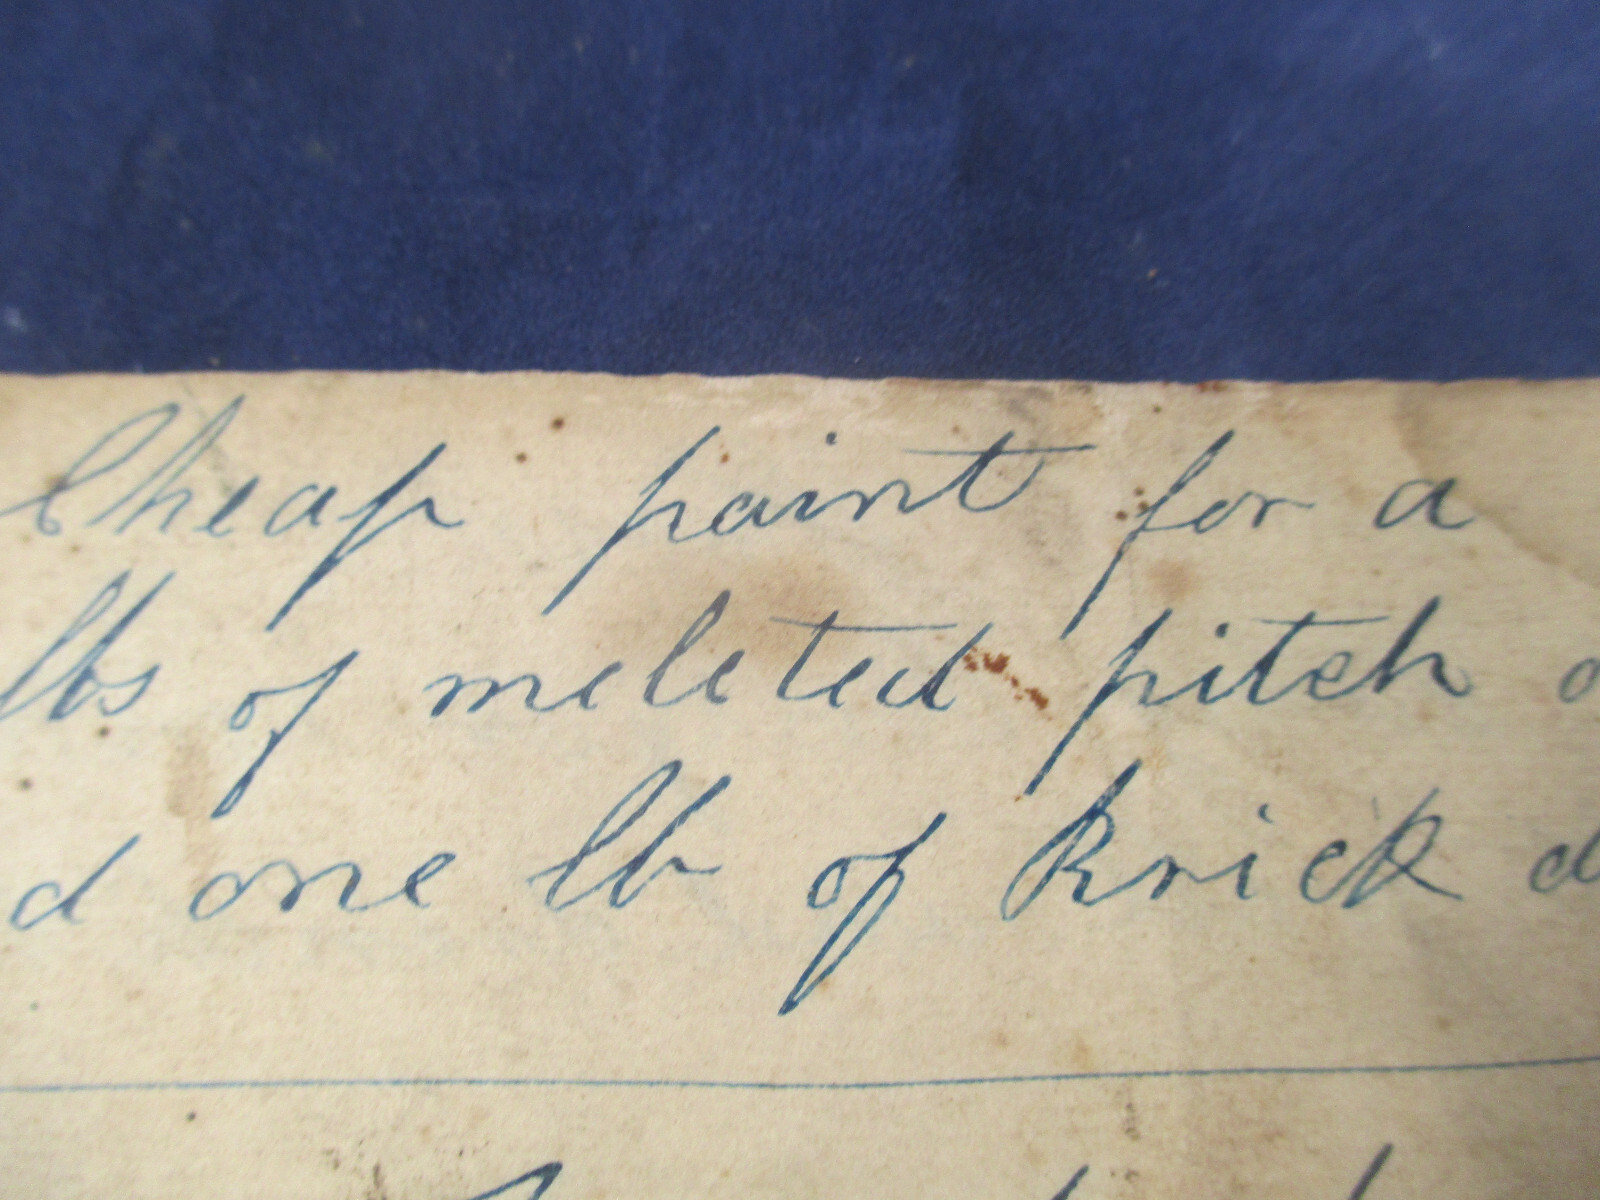 Cheap paint for a
lbs of meleted pitch
d one lb of Brick d